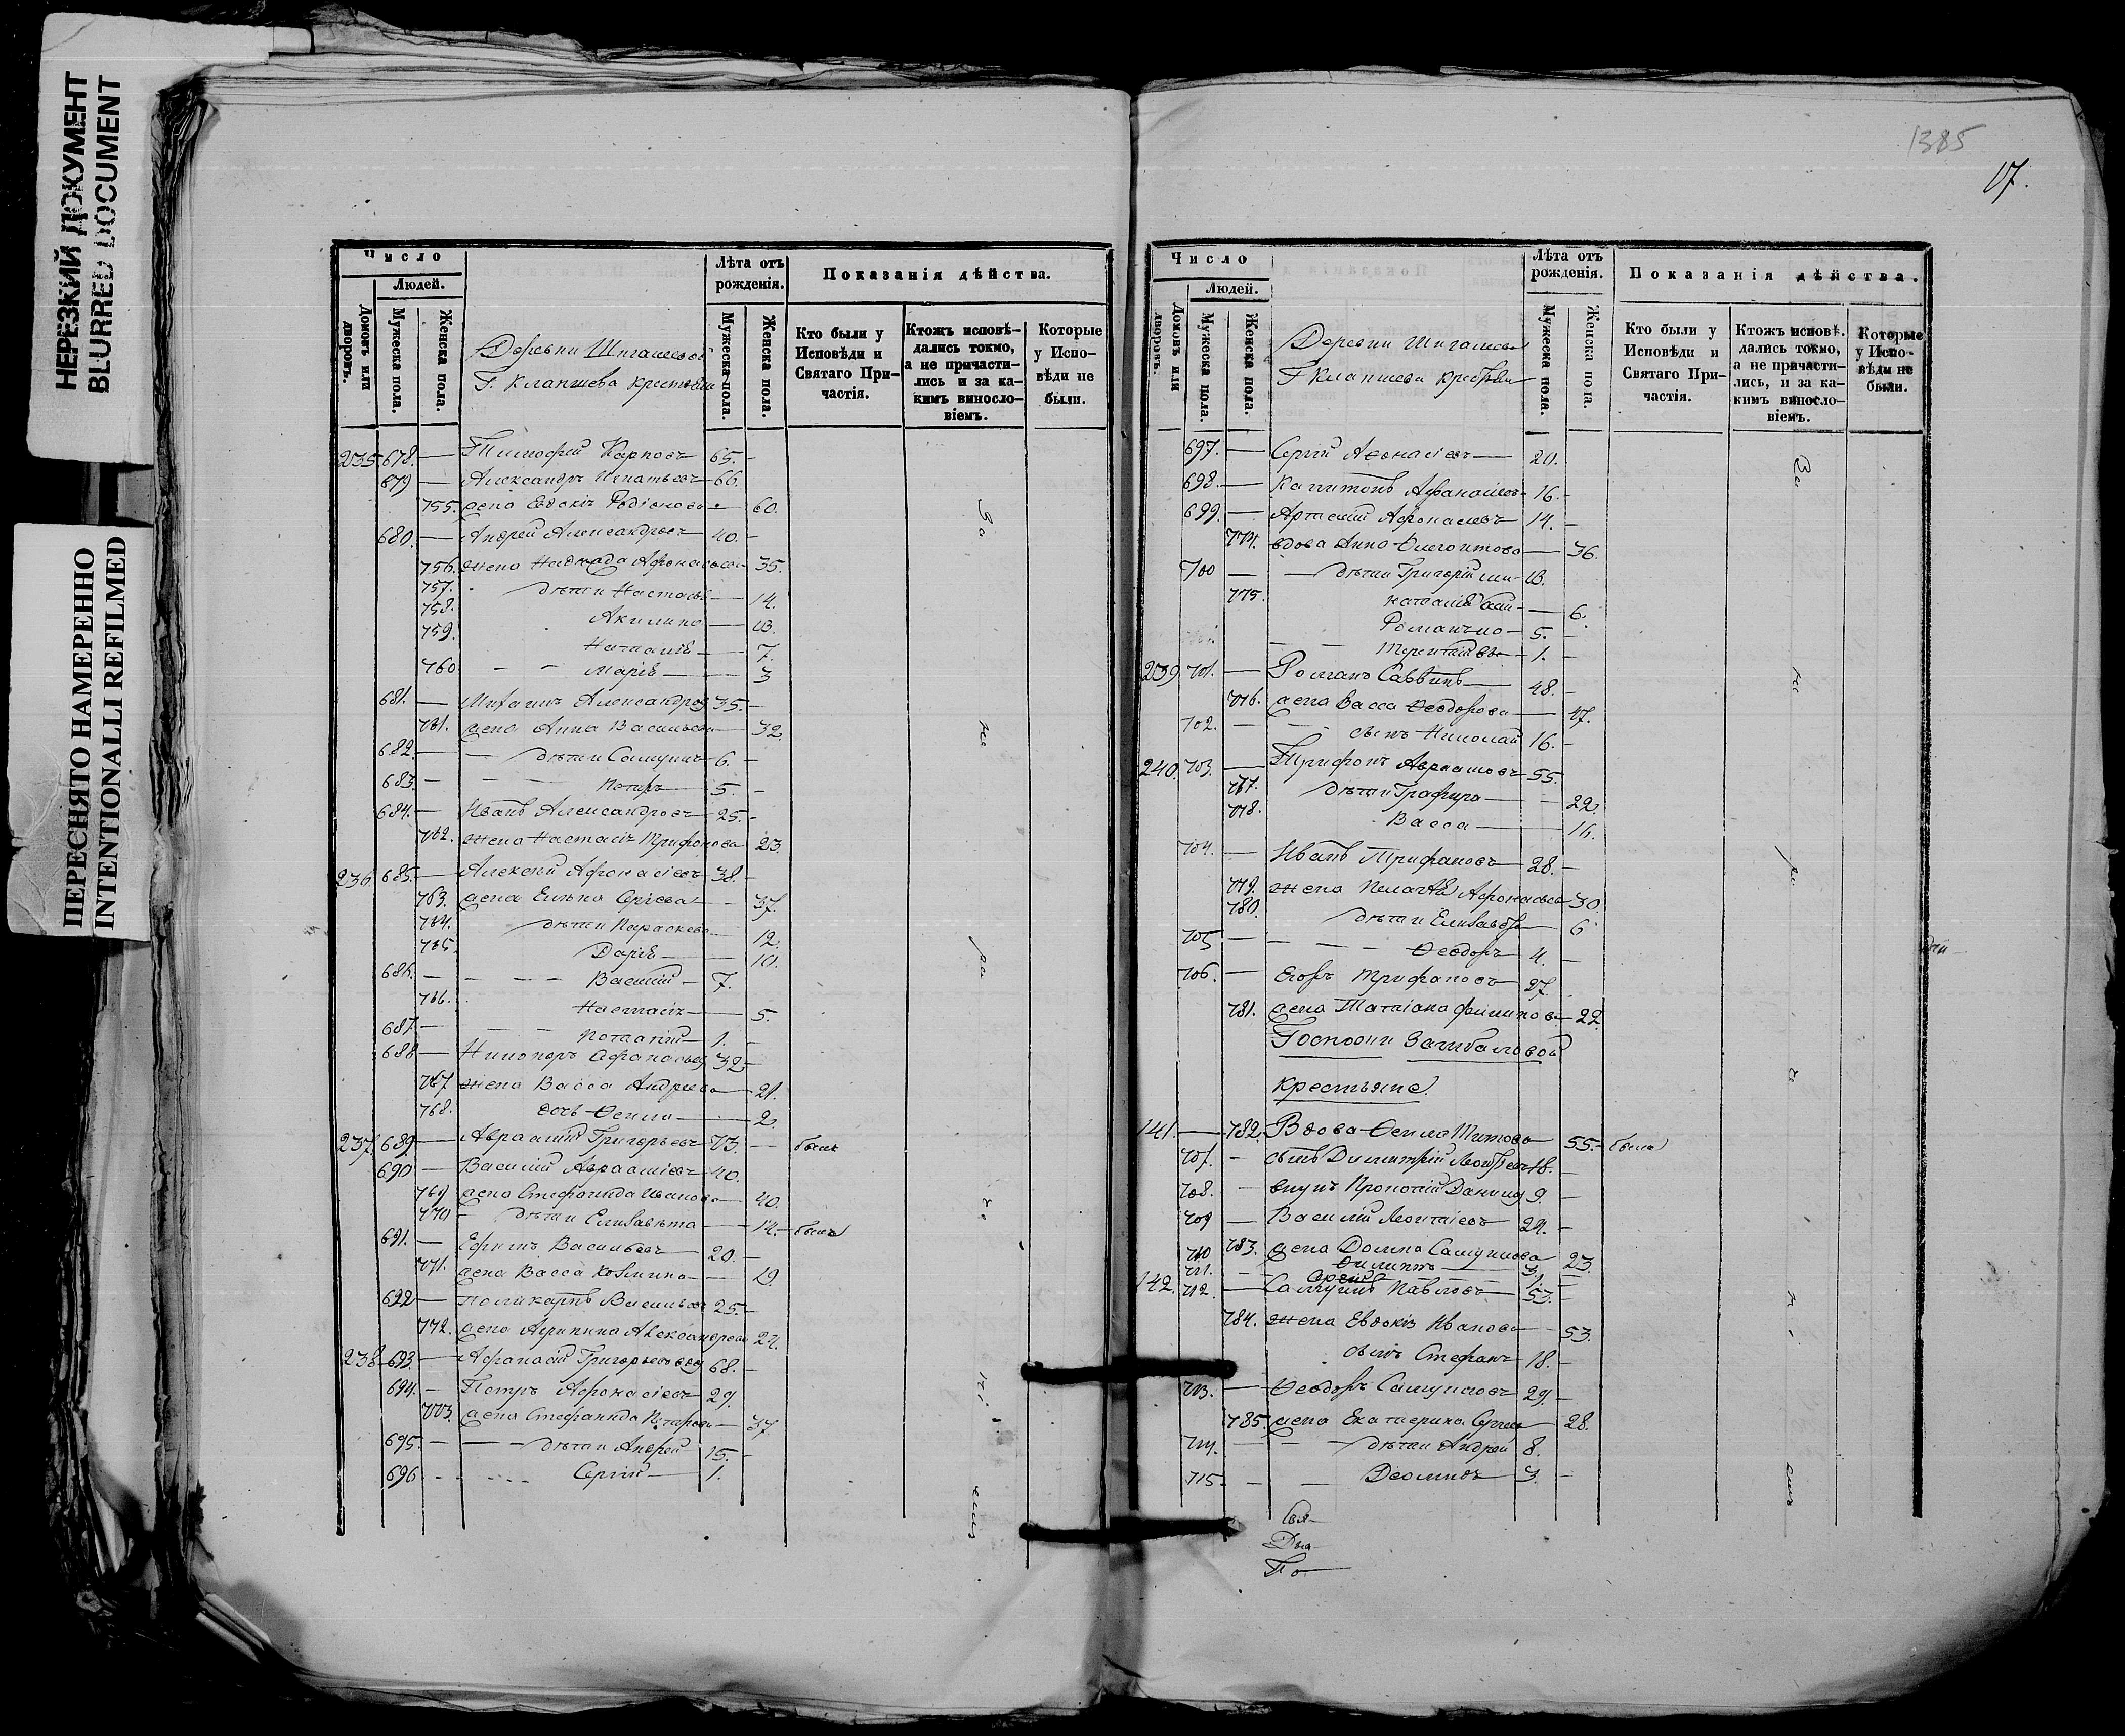 НЕРЕЗКИЙ ДОКУМЕНТ
BLURRED DOCUMENT
ПЕРЕСНЯТО НАМЕРЕННО
INTENTIONALLI REFILMED
Число
Людей.
Домовъ или дворовъ.
Мужеска пола.
Женска пола.
Деревни
Г. крестьяне
Лѣта отъ рожденія.
Мужеска пола.
Женска пола.
Показанія дѣйства.
Кто были у Исповѣди и Святаго Причастія.
Ктожъ исповѣдались токмо, а не причастились и за какимъ винословіемъ.
Которые у Исповѣди не были.
235 678. — Тимофей Карповъ 65. -
679 — Александръ Игнатьевъ 66.
755. жена Евдокія Родіонова 60.
680. — Андрей Александровъ 40. -
756. жена Надежда Афонасьева 35.
757. дѣти Настасья — 14.
758. Акилина — 13.
759. Наталія — 7.
760 - - Марія — 3
681. — Михаилъ Александровъ 35. —
761. жена Анна Васильева — 32.
682. — дѣти Самуилъ 6. -
683. - Петръ 5. -
684. — Иванъ Александровъ 25. -
762. жена Настасія Трифонова 23.
236. 685. — Алексѣй Афонасіевъ 38. -
763. жена Елена Сергіева - 37.
764. дѣти Параскева — 12.
765. Дарія — 10.
686. — Василій — 7.
766. Настасія — 5.
687. — Потапій — 1. -
688 — Никифоръ Афонасьевъ 32 -
767 жена Васса Андреева — 21.
768. дочь Ѳекла — 2.
237. 689. — Авраамій Григорьевъ 73. — былъ
690 — Василій Авраамієвъ 40.
769 жена Стефанида Иванова 40.
770 - дѣти Елизавета — 14. — была
691. — Ефимъ Васильевъ 20. -
771. жена Васса Козмина — 19.
692 — Поликарпъ Васильевъ 25. -
772. жена Агрипина Александрова 24.
238. 693. — Афанасій Григорьевъ вдов 68. -
694. — Петръ Афонасіевъ 29.
773. жена Стефанида Петрова — 37
695. — дѣти Андрей 15. -
696 - - Сергій — 1.
За не ра че ні емъ
1385
17.
Число
Людей.
Домовъ или дворовъ.
Мужеска пола.
Женска пола.
Деревни
Г
Лѣта отъ рожденія.
Мужеска пола.
Женска пола.
Показанія дѣйства.
Кто были у Исповѣди и Святаго Причастія.
Ктожъ исповѣдались токмо, а не причастились, и за какимъ винословіемъ.
Которые у Исповѣди не были.
697. — Сергій Афонасіевъ — 20.
698. — Капитонъ Афанасіевъ 16. -
699. — Артемій Афонасіевъ 14. -
774. вдова Анна — 36.
700 — дѣти Григорій 13.
775. Наталія — 6.
Романъ 5. -
Терентій 1. -
239. 701. — Романъ Саввинъ — 48. -
776. жена Васса Ѳеодорова — 47.
702. - - сынъ Николай 16. -
240. 703. — Трифонъ Авраамовъ 55.
777. дѣти Глафира — 22.
778. Васса — 16.
704. — Иванъ Трифановъ 28. -
779. жена Пелагія Афонасьева 30.
780. дѣти Елизавета — 6
705 — Ѳеодоръ 4. -
706. — Егоръ Трифановъ 27.
781. жена Татіана Филипова 22.
Госпожи
Крестьяне.
141. — 782. Вдова Ѳекла Титова 55. — была
707. - сынъ Димитрій Леонтіевъ 18. -
708. - внукъ Прокопій 9. -
709 — Василій Леонтіевъ 24. -
783. жена Домна Самуилова 23.
710 Филиппъ — 3. -
711. - - Сергій — 1. -
142. 712. — Самуилъ Павловъ 53. -
784. жена Евдокія Иванова 53.
сынъ Стефанъ 18. -
713. — Ѳеодоръ Самуиловъ 29. -
785. жена Екатерина 28.
714. — дѣти Андрей 8.
715. - - 3. -
За не ра че ні емъ
Свя-
Діа-
По-